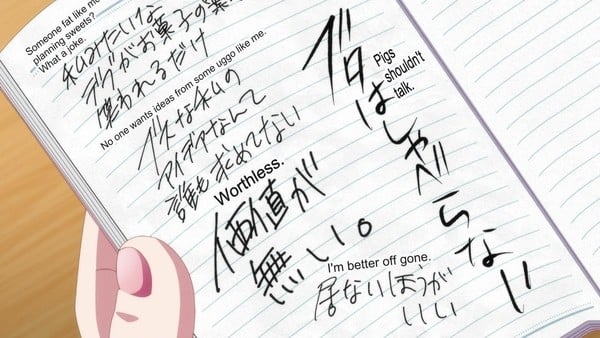 Someone fat like me
planning sweets?
What a joke.
私みたいな
デブがお菓子の
笑われるだけ
No one wants ideas from some uggo like me.
ブスな私の
アイデアなんて
誰も求めてない
Worthless.
価値が
無い。
Pigs
shouldn't
talk.
ブタはしゃべらない
I'm better off gone.
居ないほうが
いい